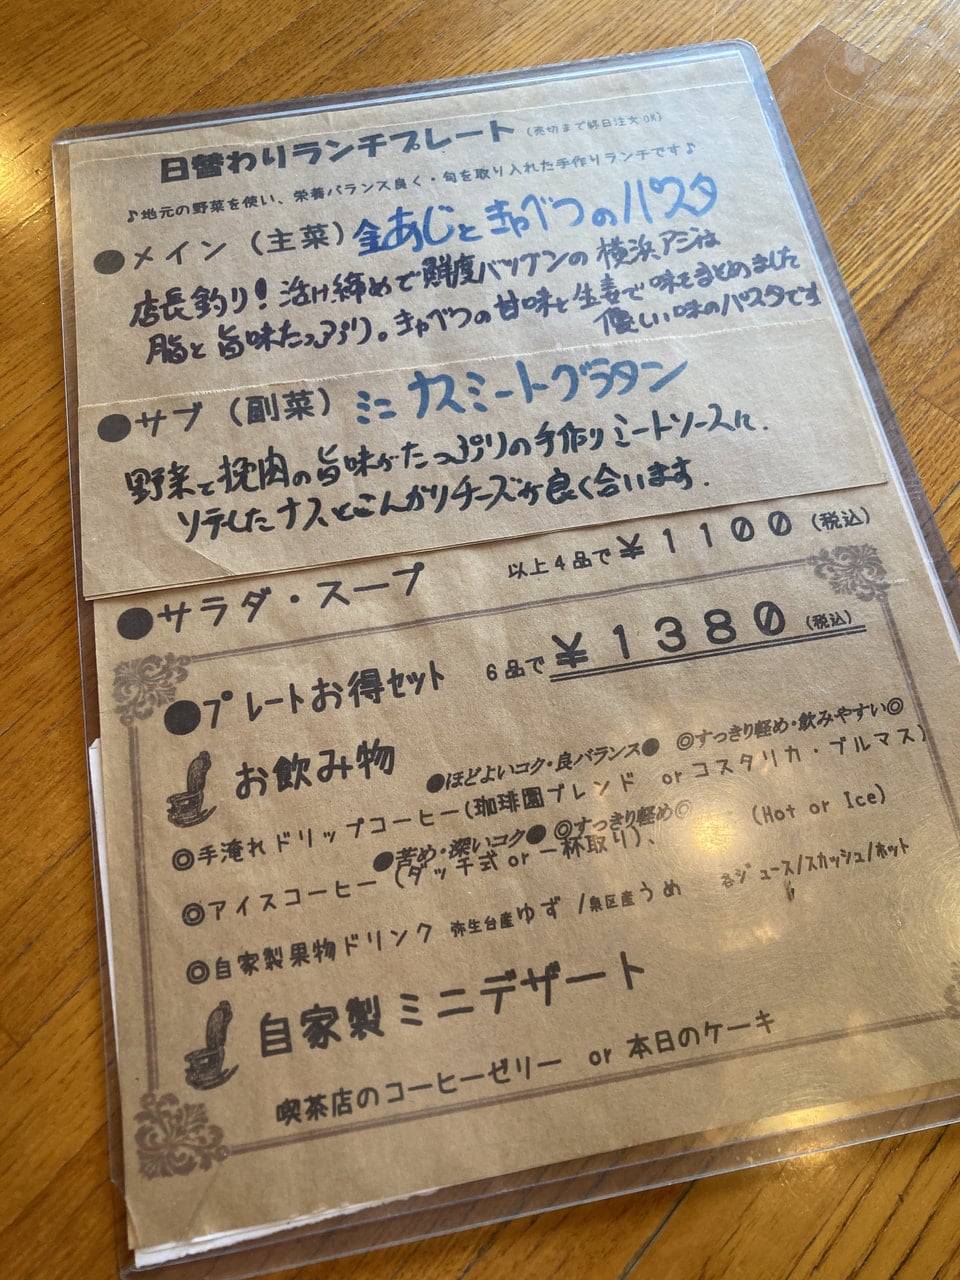 日替わりランチプレート (売切まで終日注文OK)
♪地元の野菜を使い、栄養バランス良く・旬を取り入れた手作りランチです♪
●メイン(主菜) 金あじときゃべつのパスタ
店長釣り!活け締めで鮮度バツグンの横浜アジは
脂と旨味たっぷり。きゃべつの甘味と生姜で味をまとめました
優しい味のパスタです
●サブ(副菜) ミニナスミートグラタン
野菜と挽肉の旨味がたっぷりの手作りミートソースに、
ソテーしたナスとこんがりチーズが良く合います.
●サラダ・スープ 以上4品で¥1100(税込)
●プレートお得セット 6品で¥1380(税込)
お飲み物
●ほどよいコク・良バランス● ◎すっきり軽め・飲みやすい◎
◎手淹れドリップコーヒー(珈琲園ブレンド or コスタリカ・ブルマス)
●苦め・深いコク● ◎すっきり軽め◎
◎アイスコーヒー (ダッチ式or一杯取り)、 (Hot or Ice)
◎自家製果物ドリンク 弥生台産ゆず/泉区産うめ 各ジュース/スカッシュ/ホット
自家製ミニデザート
喫茶店のコーヒーゼリー or 本日のケーキ